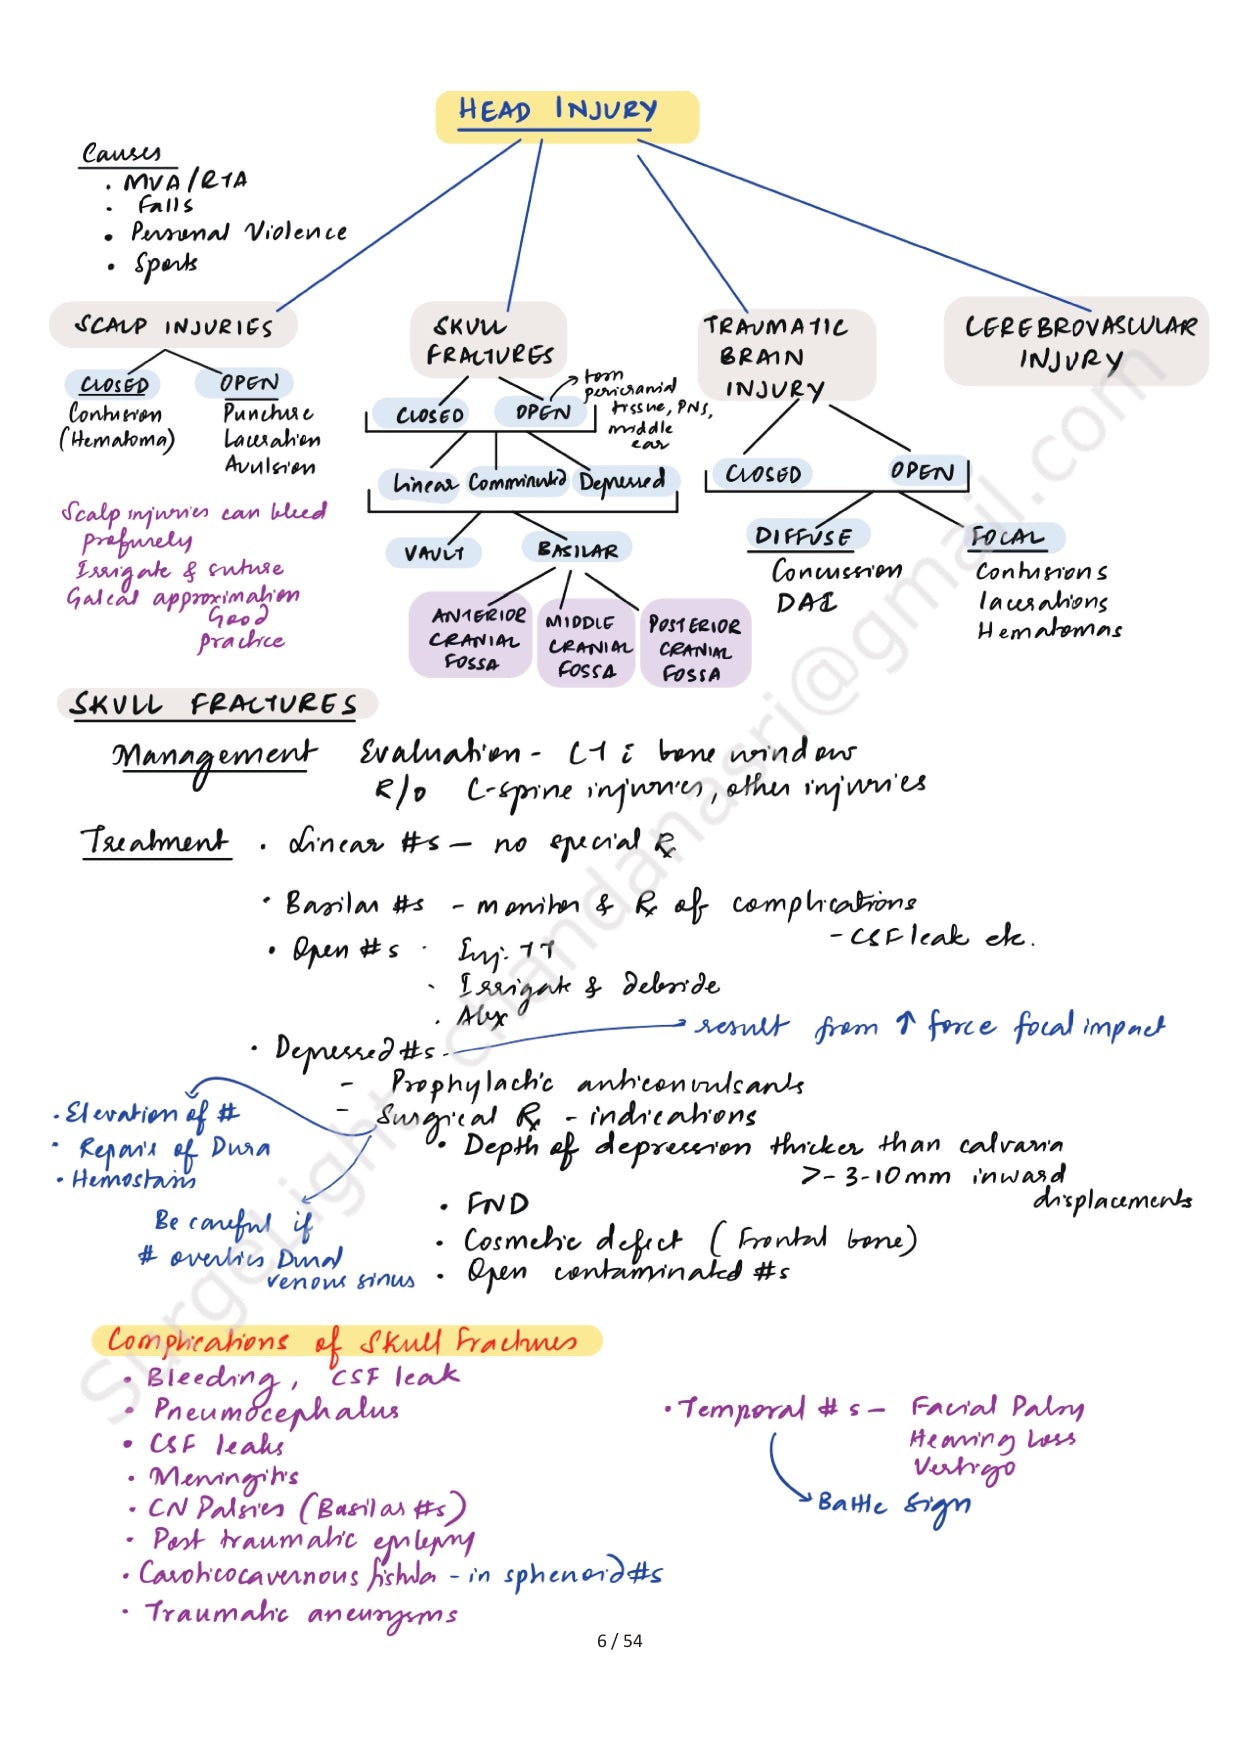 HEAD INJURY
Causes
• MVA/RTA
• Falls
• Personal Violence
• Sports
SCALP INJURIES
CLOSED
Contusion
(Hematoma)
OPEN
Puncture
Laceration
Avulsion
Scalp injuries can bleed
profusely
Irrigate & suture
Galeal approximation
Good
practice
SKULL
FRACTURES
CLOSED
OPEN
torn
pericranial
tissue, PNS,
middle
ear
Linear
Comminuted
Depressed
VAULT
BASILAR
ANTERIOR
CRANIAL
FOSSA
MIDDLE
CRANIAL
FOSSA
POSTERIOR
CRANIAL
FOSSA
TRAUMATIC
BRAIN
INJURY
CLOSED
OPEN
DIFFUSE
Concussion
DAI
FOCAL
Contusions
lacerations
Hematomas
CEREBROVASCULAR
INJURY
SKULL FRACTURES
Management Evaluation - CT c̄ bone window
R/o C-spine injuries, other injuries
Treatment • Linear #s - no special Rx
• Basilar #s - monitor & Rx of complications
- CSF leak etc.
• Open #s • Inj. TT
• Irrigate & debride
• Abx
• Depressed #s - result from ↑ force focal impact
- Prophylactic anticonvulsants
- Surgical Rx - indications
• Elevation of #
• Repair of Dura
• Hemostasis
Be careful if
# overlies Dural
venous sinus
• Depth of depression thicker than calvaria
>- 3-10mm inward
displacements
• FND
• Cosmetic defect (Frontal bone)
• Open contaminated #s
Complications of Skull Fractures
• Bleeding, CSF leak
• Pneumocephalus
• CSF leaks
• Meningitis
• CN Palsies (Basilar #s)
• Post traumatic epilepsy
• Caroticocavernous fistula - in sphenoid #s
• Traumatic aneurysms
• Temporal #s - Facial Palsy
Hearing Loss
Vertigo
Battle Sign
SurgeLight chandanasri@gmail.com
6 / 54